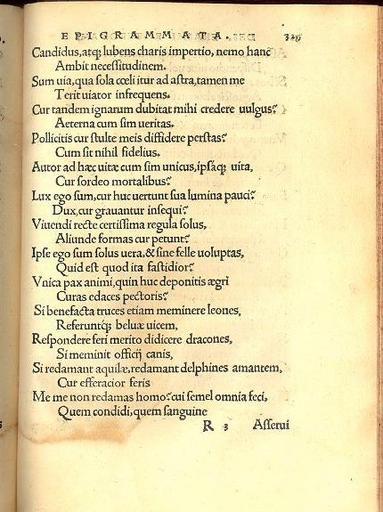 EPIGRAMMATA.
Candidus, atq; lubens charis impertio, nemo hanc
Ambit necessitudinem.
Sum uia, qua sola cœli itur ad astra, tamen me
Terit uiator infrequens.
Cur tandem ignarum dubitat mihi credere uulgus?
Aeterna cum sim ueritas.
Pollicitis cur stulte meis diffidere perstas?
Cum sit nihil fidelius.
Autor ad hæc uitæ cum sim unicus, ipsaq; uita,
Cur sordeo mortalibus?
Lux ego sum, cur huc uertunt sua lumina pauci?
Dux, cur grauantur insequi?
Viuendi recte certissima regula solus,
Aliunde formas cur petunt?
Ipse ego sum solus uera, & sine felle uoluptas,
Quid est quod ita fastidior?
Vnica pax animi, quin huc deponitis ægri
Curas edaces pectoris?
Si benefacta truces etiam meminere leones,
Referuntq; beluæ uicem,
Respondere feri merito didicere dracones,
Si meminit officij canis,
Si redamant aquilæ, redamant delphines amantem,
Cur efferacior feris
Me me non redamas homo? cui semel omnia feci,
Quem condidi, quem sanguine
R 3 Asserui